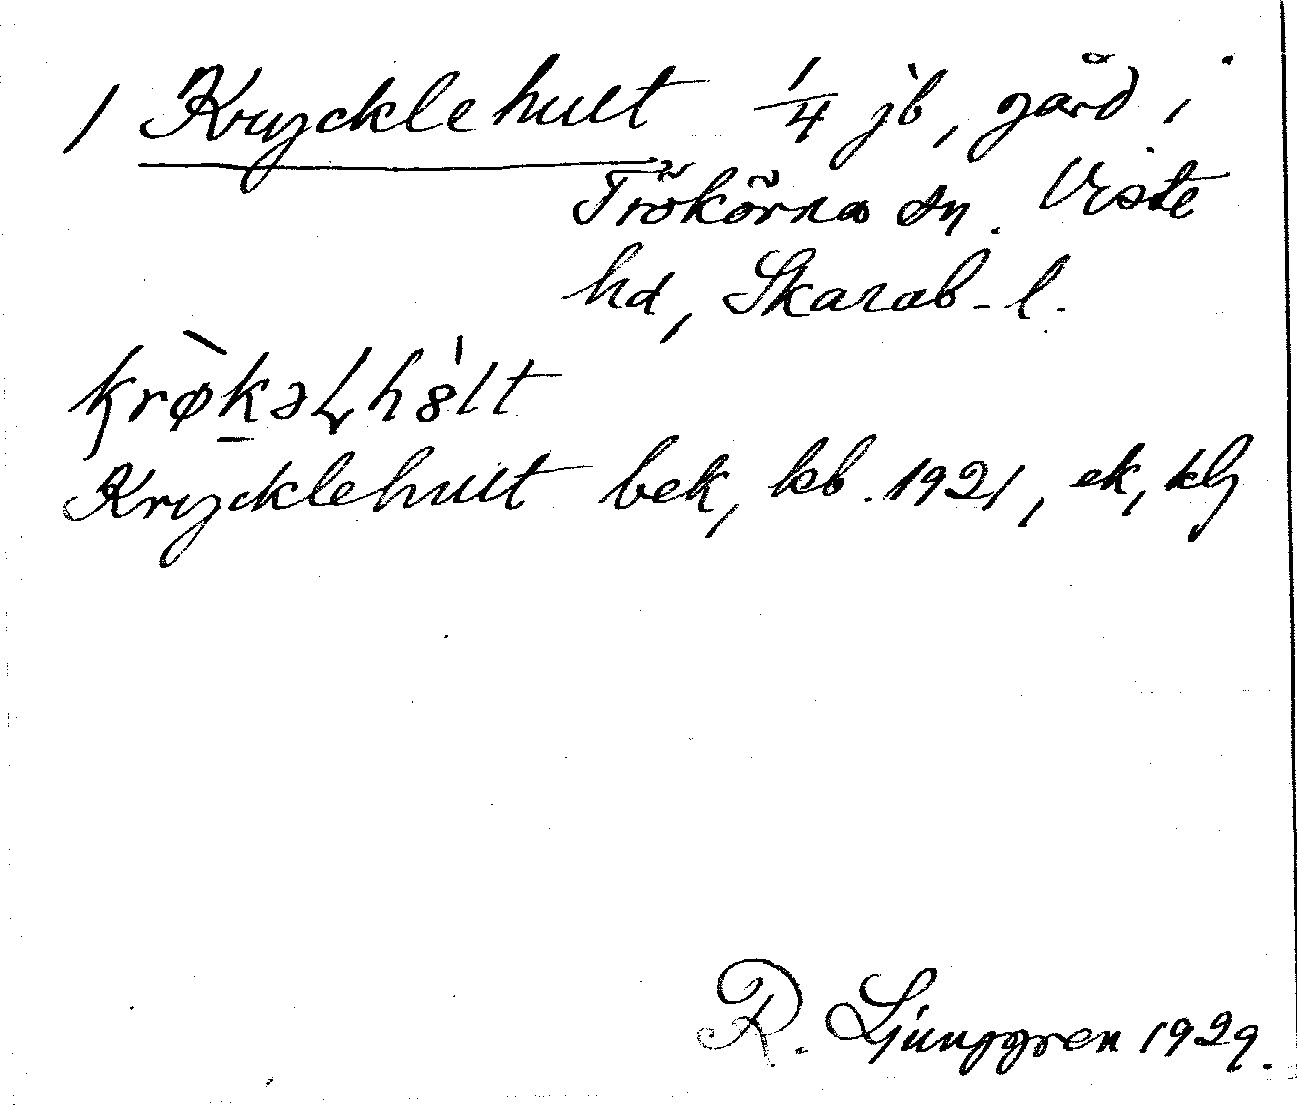 1 Krycklehult 1/4 jb, gård i
Trökörna sn. Viste
hd, Skarab-l.
krø̀kəɽhȣ́lt
Krycklehult bek, kb. 1921, ek, klj
R. Ljunggren 1929.